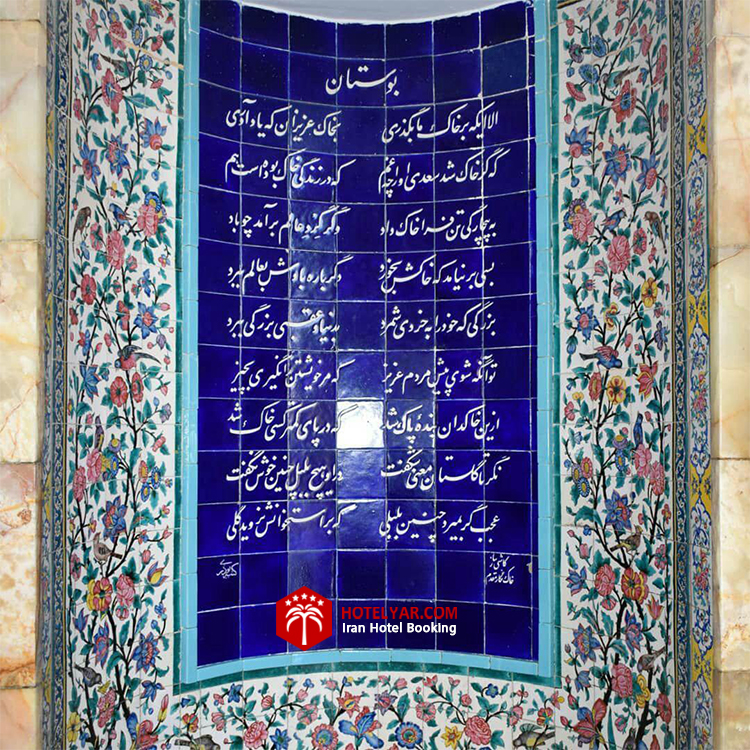 بوستان
الا ایکه بر خاک ما بگذری بخاک عزیزان که یاد آوری
که گر خاک شد سعدی او را چه غم که در زندگی خاک بوده است هم
به بیچارگی تن فرا خاک داد وگر گرد عالم برآمد چو باد
بسی برنیامد که خاکش بخورد دگر باره بادش بعالم ببرد
بزرگی که خود را به خردی شمرد بدنیا و عقبی بزرگی ببرد
تو آنگه شوی پیش مردم عزیز که مر خویشتن را نگیری بچیز
ازین خاکدان بنده پاک شد که در پای کمتر کسی خاک شد
نگر تا گلستان معنی شکفت در او هیچ بلبل چنین خوش نگفت
عجب گر بمیرد چنین بلبلی که بر استخوانش نروید گلی
کاشی ساز
خاک نگار مقدم
HOTELYAR.COM
Iran Hotel Booking